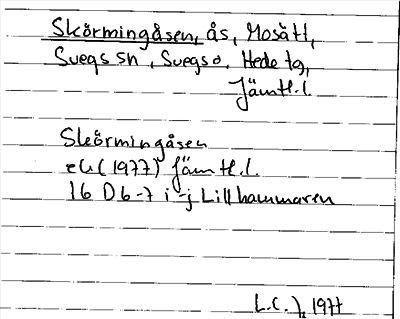 Skörmingåsen, ås, Mosätt,
Svegs sn, Svegs o. Hede tg,
Jämtl. l.
Skörmingåsen
ek (1977) Jämtl. l.
16 D 6-7 i-j Lillhammaren
L.C.J, 1977